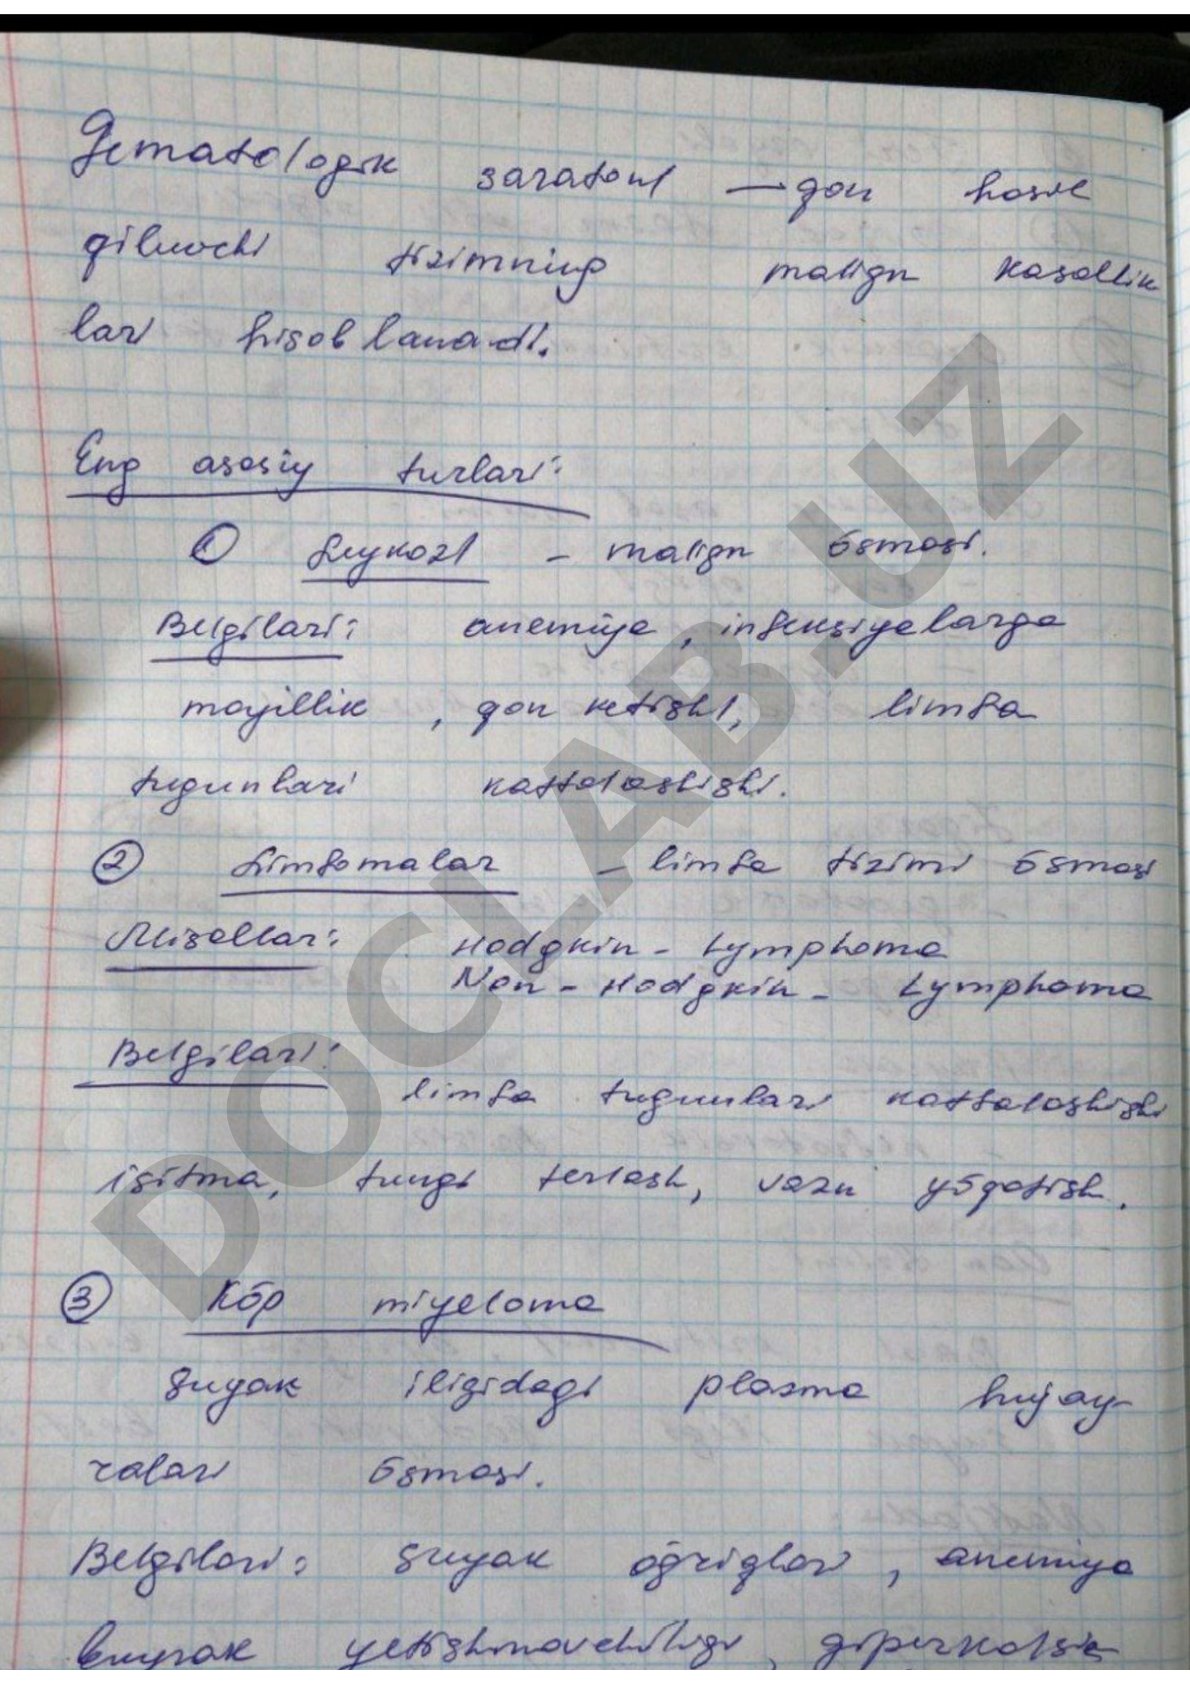 Gematologik saratoni — qon hosil
qiluvchi tizimning malign kasallik
lari hisoblanadi.
Eng asosiy turlari:
① Leykozi - malign ōsmasi.
Belgilari: anemiya, infeksiyalarga
moyillik, qon ketishi, limfa
tugunlari kattalashishi.
② Limfomalar - limfa tizimi ōsmasi
Misollar: Hodgkin - Lymphoma
Non - Hodgkin - Lymphoma
Belgilari:
limfa tugunlari kattalashishi
isitma, tungi terlash, vazn yōqotish.
③ Kōp miyeloma
suyak iligidagi plasma hujay-
ralari ōsmasi.
Belgilari: suyak ōgriqlari, anemiya
buyrak yetishmovchiligi, giperkalsie
DOCLAB.UZ